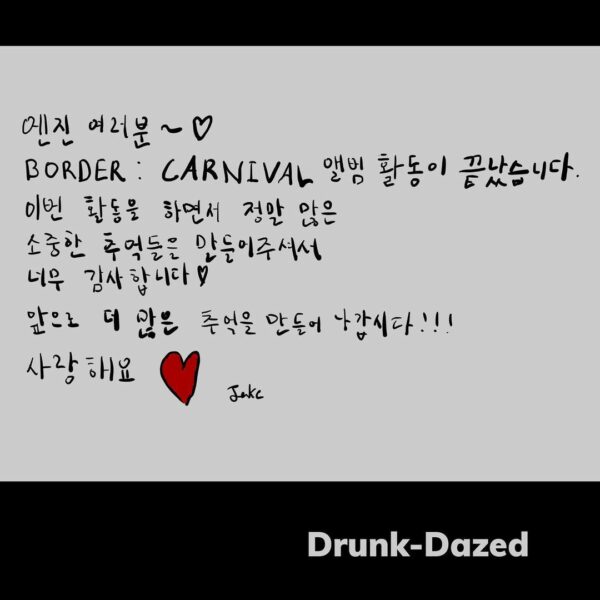 엔진 여러분~♡
BORDER : CARNIVAL 앨범 활동이 끝났습니다.
이번 활동을 하면서 정말 많은
소중한 추억들을 만들어주셔서
너무 감사합니다♥
앞으로 더 많은 추억을 만들어 나갑시다!!!
사랑해요 ♥ Jake
Drunk-Dazed